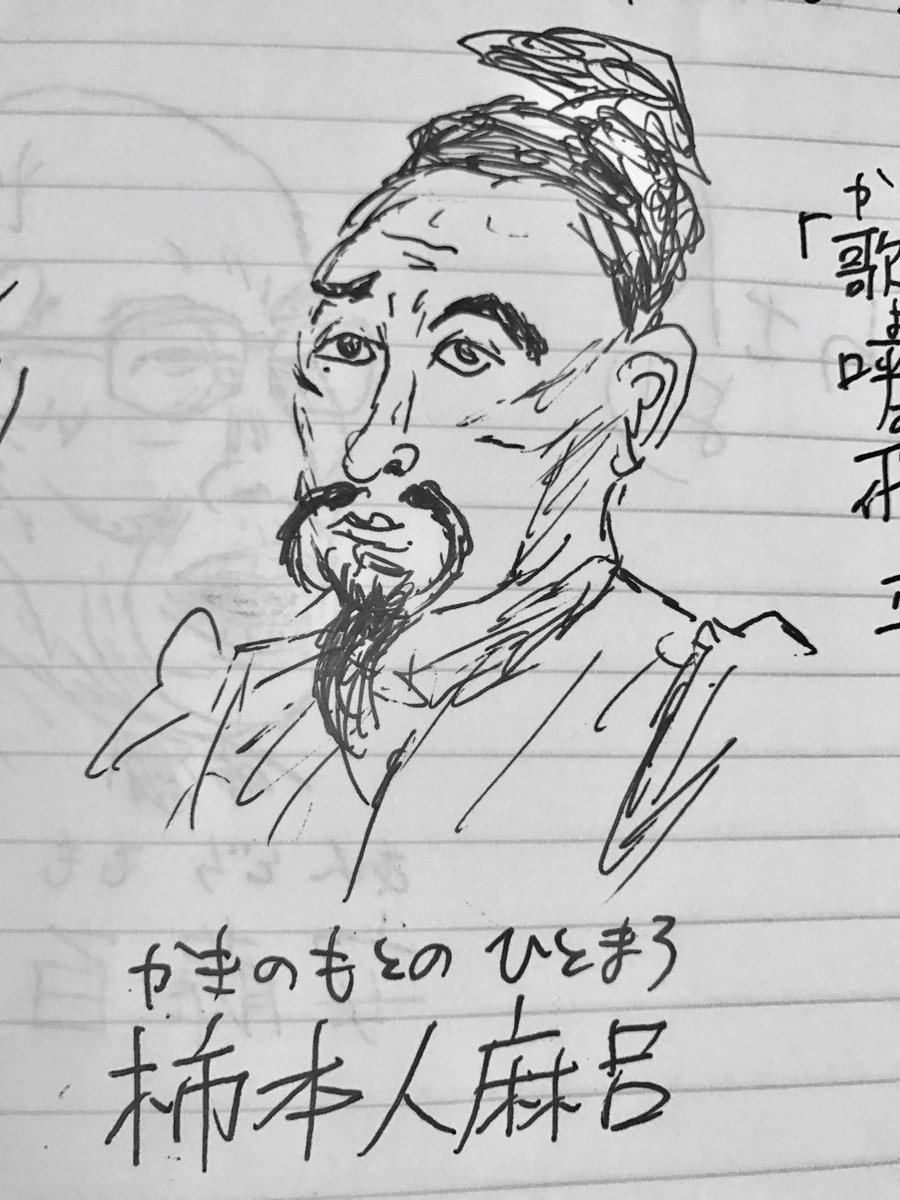 かきのもとの ひとまろ
柿本人麻呂
「歌